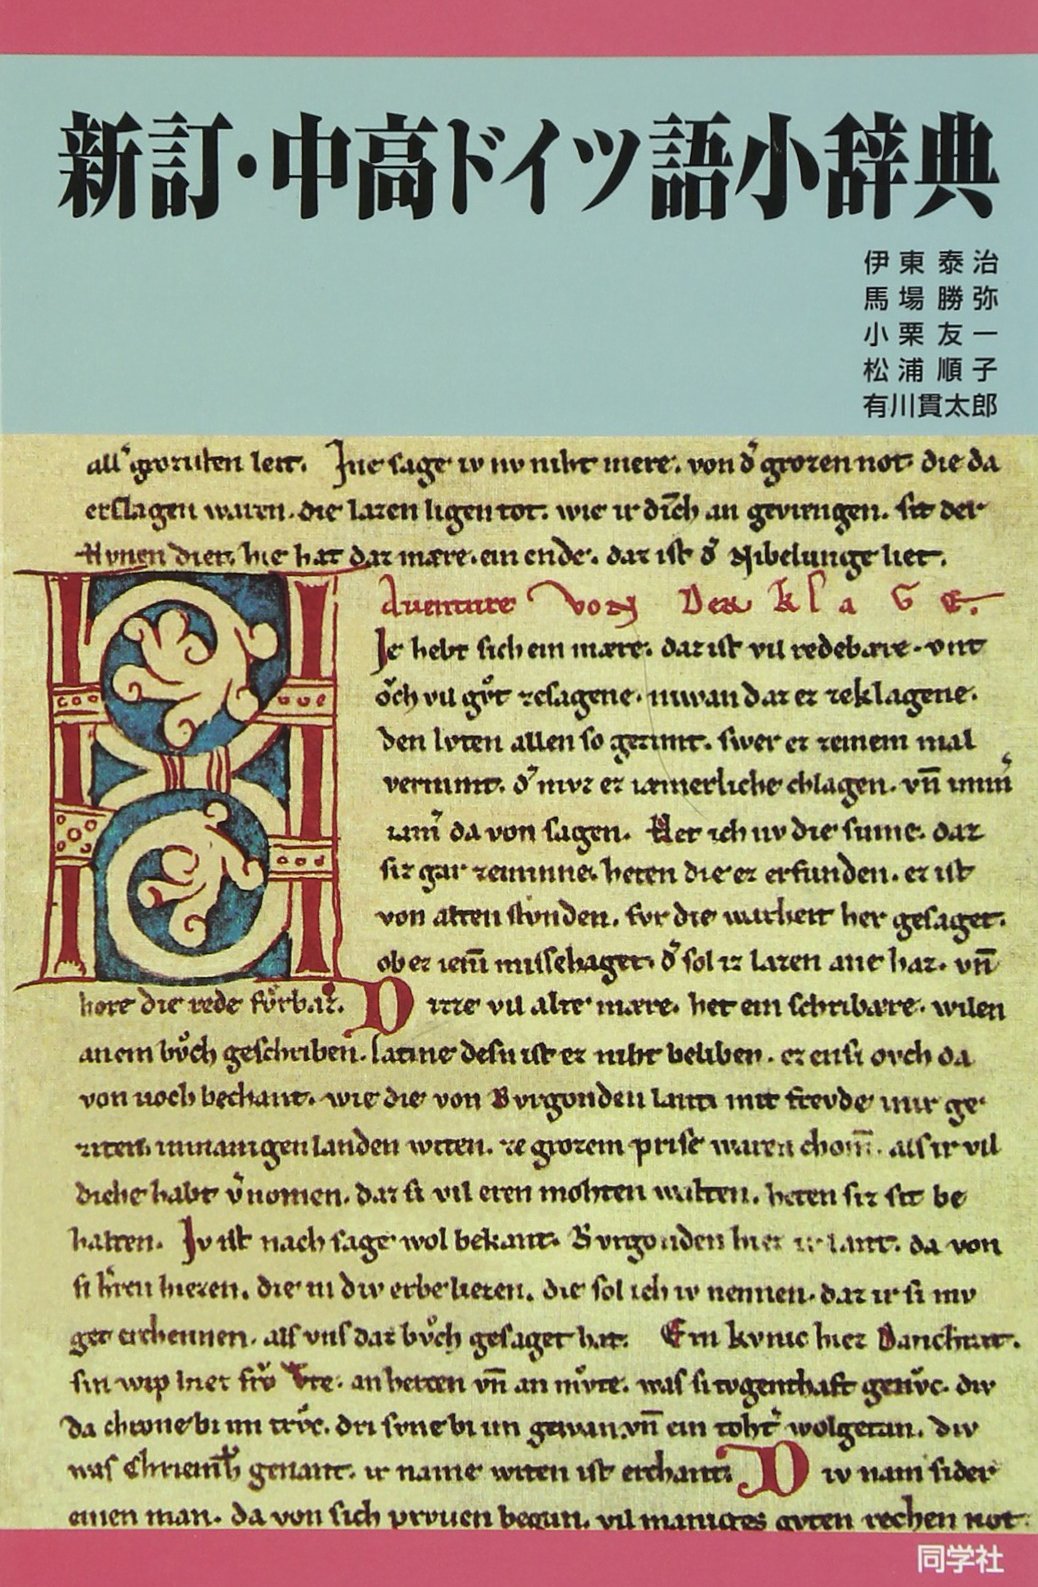 新訂・中高ドイツ語小辞典
伊東泰治
馬場勝弥
小栗友一
松浦順子
有川貫太郎
sage iv nv niht mere. von d̛ grozen not die da
erslagen waren. die lazen ligen tot. wie ir dīch an geviengen. sit der
Hvnen diet. hie hat daz mære. ein ende. daz ist d̛ Nibelunge liet.
Auenture von Der klage.
Je hebt sich ein mære. daz ist vil redebære. vnt
ǒch vil gůt zesagene. niwan daz ez zeklagene.
den lvten allen so gezimt. swer ez zeinem mal
vernimt. d̛ mvz ez iæmerliche chlagen. vn̄
da von sagen. Het ich nv die sinne. daz
siz gar zeminne. heten die ez erfunden. ez ist
von alten stvnden. fvr die warheit her gesaget.
ob ez missehaget. d̛ sol iz lazen ane haz. vn̄
hore die rede fůrbaz. Ditze vil alte mære. het ein schribære. wilen
an ein bůch geschriben. latine desn ist ez niht beliben. ez ensi ovch da
von noch bechant. wie die von Bvrgonden lant mit frevde
landen witen. ze grozem prise waren chom̄. als ir vil
diche habt v̛nomen. daz si vil eren mohten walten. heten siz sit be
halten. Jv ist nach sage wol bekant. Bvrgonden hiez ir lant. da von
si hiezen. die in div erbe liezen. die sol ich iv nennen. daz ir si mv
get erchennen. als vns daz bůch gesaget hat. Ein kvnic hiez Danchrat.
sin wip hiez an herzen vn̄ an můte. was si tvgenthaft genůc. div
da chrone bi im trůc. dri svne bi im gewan. vn̄ ein toht̛ wolgetan. div
was genant. ir name witen ist erchant. Div nam sider
einen man. da von sich prvuen began. vil maniges gvten rechen not
同学社